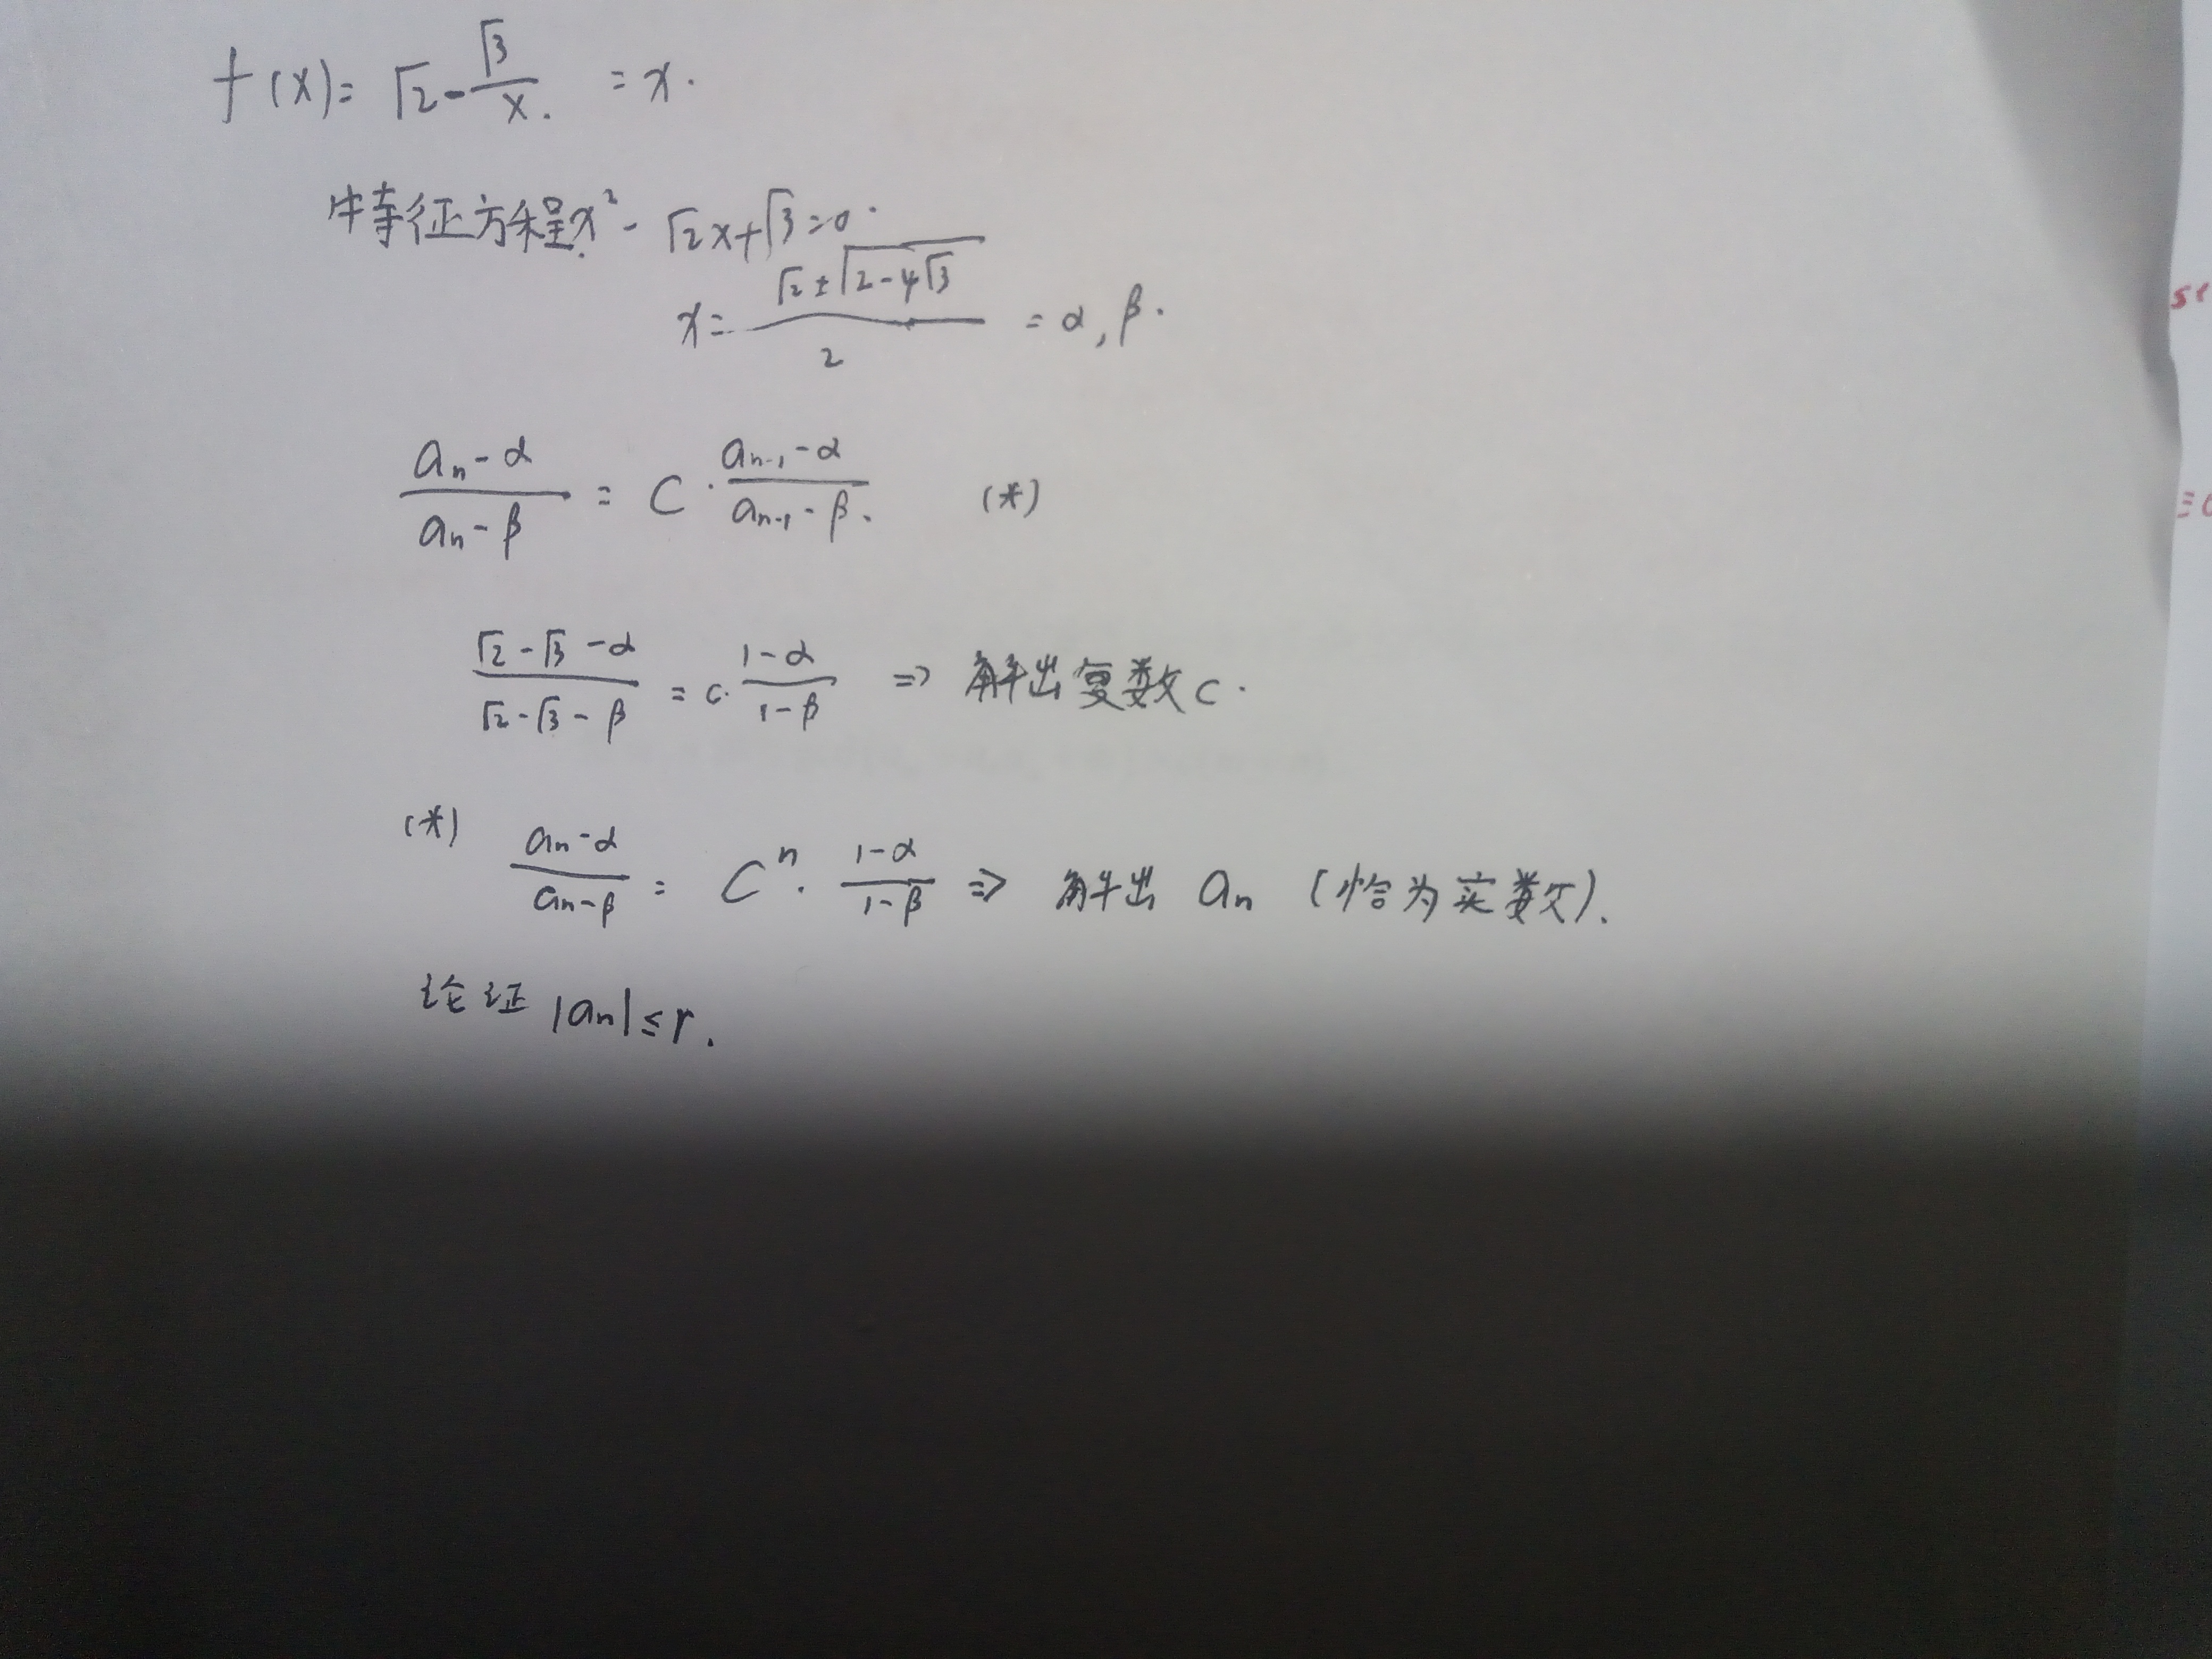 f(x)= √2 - √3/x. = x.
特征方程 x² - √2x+√3=0.
x= (√2 ± √(2-4√3))/2 = α, β.
(aₙ-α)/(aₙ-β) = C · (aₙ₋₁-α)/(aₙ₋₁-β). (*)
(√2-√3-α)/(√2-√3-β) = c· (1-α)/(1-β) ⇒ 解出复数c.
(*) (aₙ-α)/(aₙ-β) = Cⁿ· (1-α)/(1-β) ⇒ 解出 aₙ (恰为实数).
论证 |aₙ|≤r.